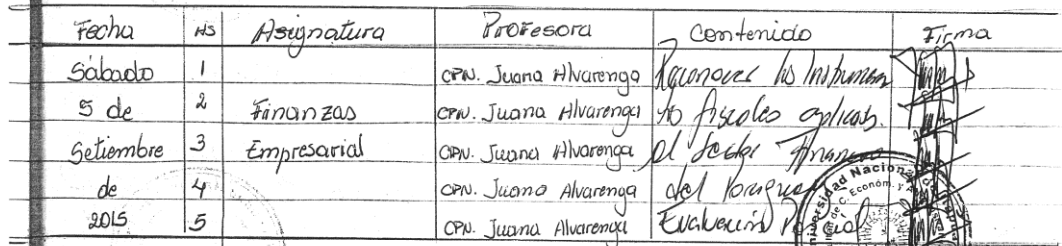 Fecha HS Asignatura Profesora Contenido Firma
Sábado 1 CPN. Juana Alvarenga Reconocer los Instrumen
5 de 2 Finanzas CPN. Juana Alvarenga to fiscales aplicas.
Setiembre 3 Empresarial CPN. Juana Alvarenga al Sector Financiero
de 4 CPN. Juana Alvarenga del Paraguay
2015 5 CPN. Juana Alvarenga Evaluación